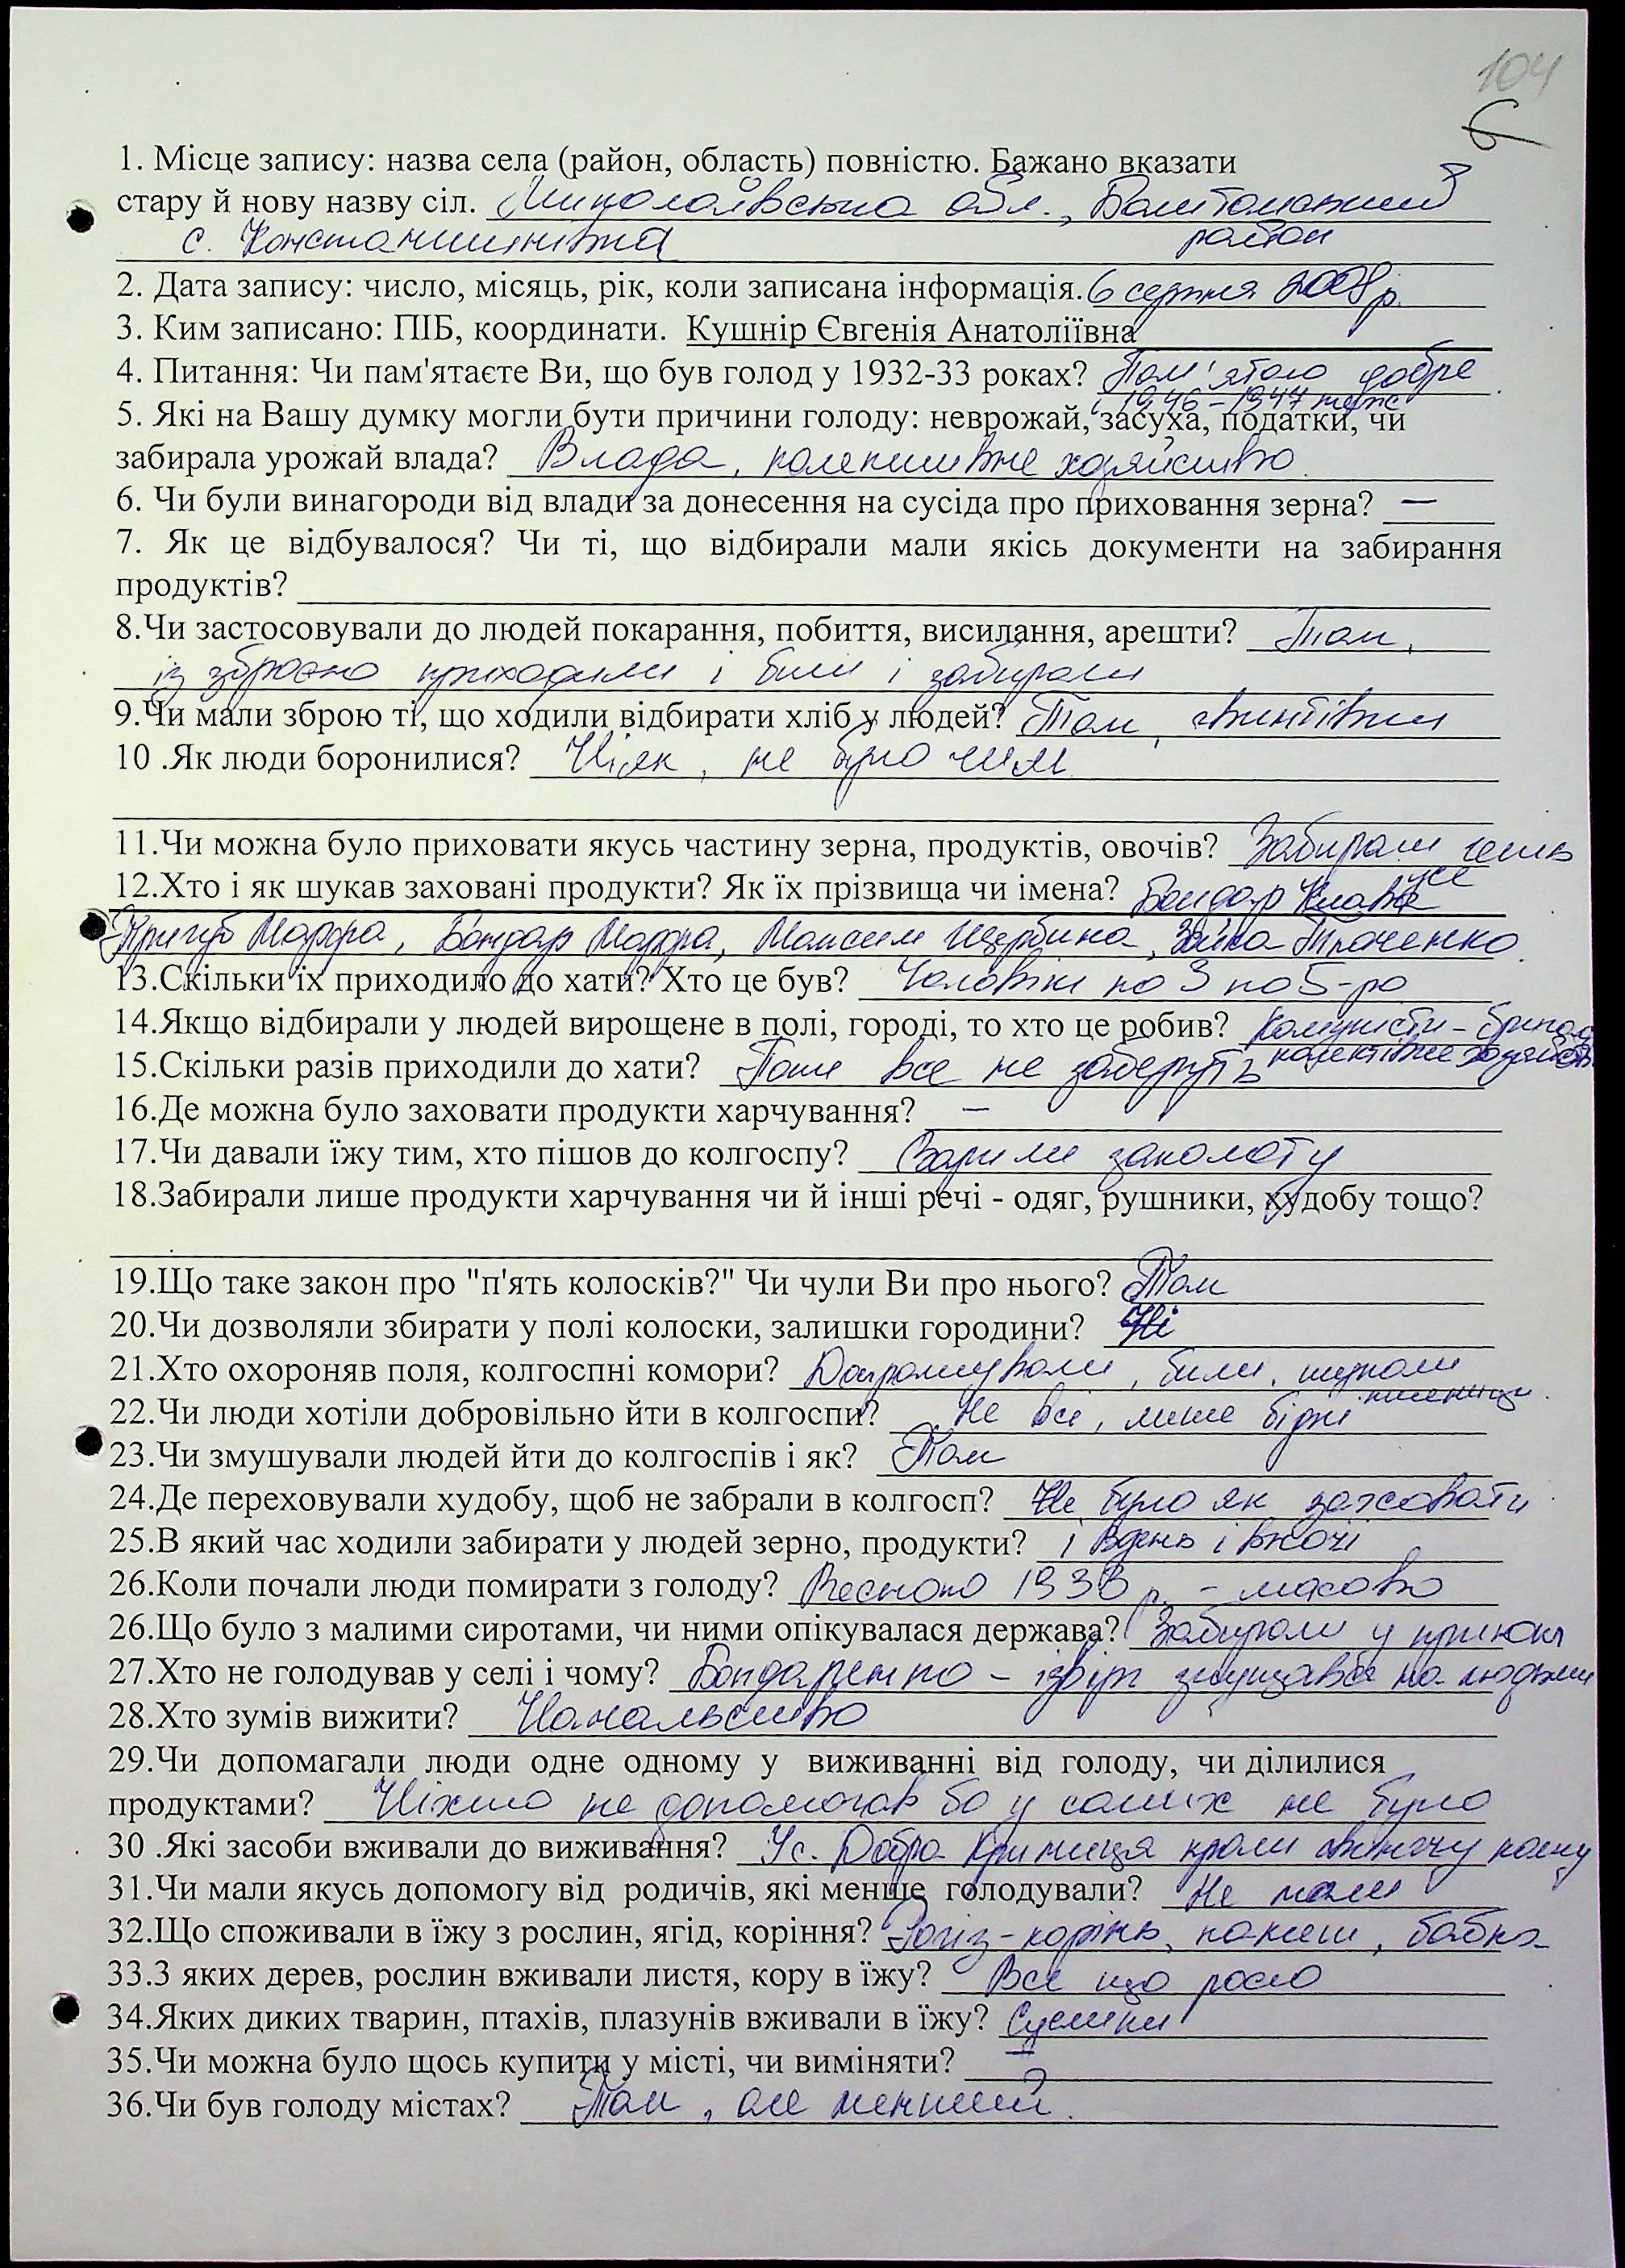 104
6
1. Місце запису: назва села (район, область) повністю. Бажано вказати
стару й нову назву сіл. Миколаївська обл., Баштанський
с. Константинівка район
2. Дата запису: число, місяць, рік, коли записана інформація. 6 серпня 2008 р.
3. Ким записано: ПІБ, координати. Кушнір Євгенія Анатоліївна
4. Питання: Чи пам'ятаєте Ви, що був голод у 1932-33 роках? Пам'ятаю добре
і 1946-1947 теж
5. Які на Вашу думку могли бути причини голоду: неврожай, засуха, податки, чи
забирала урожай влада? Влада, колективне хозяйство
6. Чи були винагороди від влади за донесення на сусіда про приховання зерна? —
7. Як це відбувалося? Чи ті, що відбирали мали якісь документи на забирання
продуктів?
8.Чи застосовували до людей покарання, побиття, висилання, арешти? Так,
із зброєю приходили і били і забирали
9.Чи мали зброю ті, що ходили відбирати хліб у людей? Так, гвинтівки
10 .Як люди боронилися? Ніяк, не було чим
11.Чи можна було приховати якусь частину зерна, продуктів, овочів? Забирали геть
усе
12.Хто і як шукав заховані продукти? Як їх прізвища чи імена? Бондар Клава
Кригуб Марфа, Бондар Марфа, Максим Щербина, Заїка Ткаченко
13.Скільки їх приходило до хати? Хто це був? Чоловіки по 3 по 5-ро
14.Якщо відбирали у людей вирощене в полі, городі, то хто це робив? Комуністи - бригад
колективне хозяйств
15.Скільки разів приходили до хати? Поки все не заберуть
16.Де можна було заховати продукти харчування? —
17.Чи давали їжу тим, хто пішов до колгоспу? Варили
18.Забирали лише продукти харчування чи й інші речі - одяг, рушники, худобу тощо?
19.Що таке закон про "п'ять колосків?" Чи чули Ви про нього? Так
20.Чи дозволяли збирати у полі колоски, залишки городини? Ні
21.Хто охороняв поля, колгоспні комори? били, шукали
пшеницю
22.Чи люди хотіли добровільно йти в колгоспи? Не всі, лише бідні
23.Чи змушували людей йти до колгоспів і як? Так
24.Де переховували худобу, щоб не забрали в колгосп? Не було як заховати
25.В який час ходили забирати у людей зерно, продукти? і вдень і вночі
26.Коли почали люди помирати з голоду? Весною 1933 р. - масово
26.Що було з малими сиротами, чи ними опікувалася держава? Забирали у приюти
27.Хто не голодував у селі і чому? Бондаренко - ізвірг знущався на людьми
28.Хто зумів вижити? Начальство
29.Чи допомагали люди одне одному у виживанні від голоду, чи ділилися
продуктами? Ніхто не допомагав бо у самих не було
30 .Які засоби вживали до виживання? У с. Добра Криниця крали свинячу кашу
31.Чи мали якусь допомогу від родичів, які менше голодували? Не мали
32.Що споживали в їжу з рослин, ягід, коріння? Рогіз - корінь, бабка
33.З яких дерев, рослин вживали листя, кору в їжу? Все що росло
34.Яких диких тварин, птахів, плазунів вживали в їжу? Сусліки
35.Чи можна було щось купити у місті, чи виміняти? —
36.Чи був голоду містах? Так, але менший.